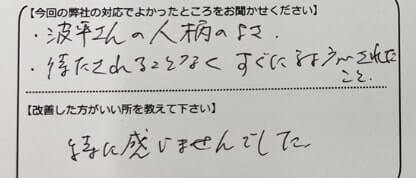 【今回の弊社の対応でよかったところをお聞かせください】
・波平さんの人柄のよさ
・待たされることなく すぐに された
こと.
【改善した方がいい所を教えて下さい】
特に感じませんでした